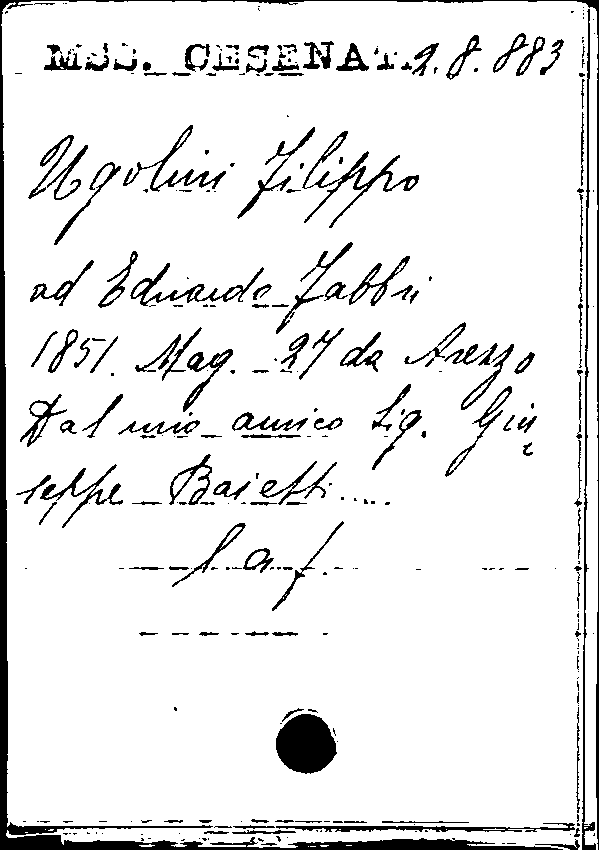 MSS. CESENAT. 2.8.883
Ugolini Filippo
ad Eduardo Fabbri
1851. Mag. 27 da Arezzo
Dal mio amico Sig. Giu
seppe Baietti.....
l. a. f.